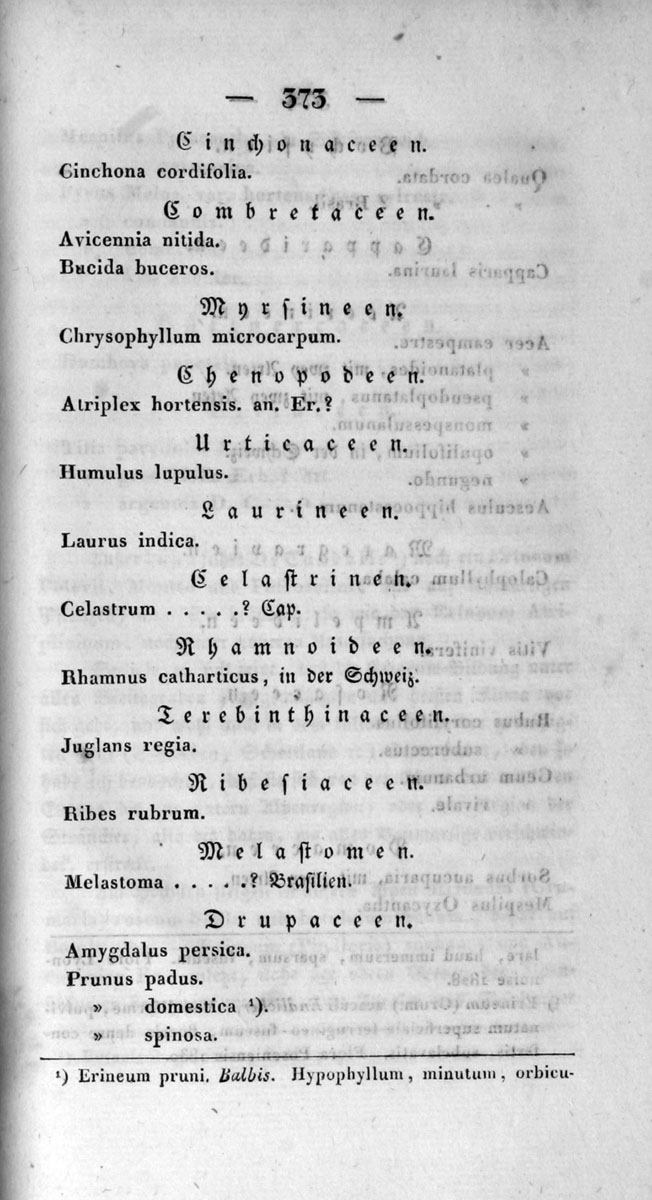 — 373 —
Cinchonaceen.
Cinchona cordifolia.
Combretaceen.
Avicennia nitida.
Bucida buceros.
Myrsineen.
Chrysophyllum microcarpum.
Chenopodeen.
Atriplex hortensis. an. Er.?
Urticaceen.
Humulus lupulus.
Laurineen.
Laurus indica.
Celastrinen.
Celastrum . . . . .? Cap.
Rhamnoideen.
Rhamnus catharticus, in der Schweiz.
Terebinthinaceen.
Juglans regia.
Ribesiaceen.
Ribes rubrum.
Melastomen.
Melastoma . . . . .? Brasilien.
Drupaceen.
Amygdalus persica.
Prunus padus.
» domestica ¹).
» spinosa.
¹) Erineum pruni. Balbis. Hypophyllum, minutum, orbicu-